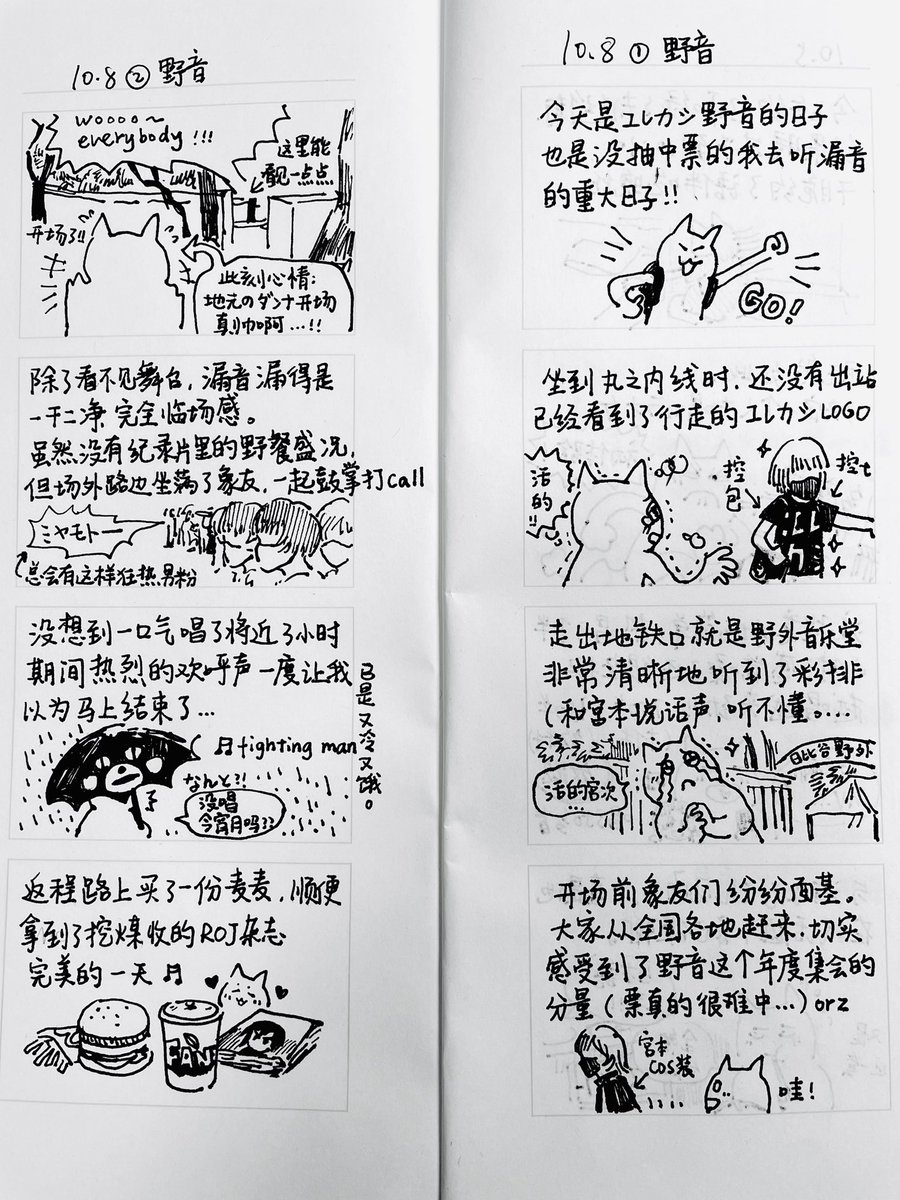 10.8 ① 野音
今天是エレカシ野音的日子
也是没抽中票的我去听漏音
的重大日子!!
GO!
坐到丸之内线时,还没有出站
已经看到了行走的エレカシLOGO
活的!!
挖包
挖t
走出地铁口就是野外音乐堂
非常清晰地听到了彩排
(和宫本说话声,听不懂。...
活的宫次
日比谷野外
开场前象友们纷纷面基。
大家从全国各地赶来,切实
感受到了野音这个年度集会的
分量(票真的很难中...)orz
宫本
COS装
哇!
10.8 ② 野音
woooo~
everybody!!!
这里能
看见一点点
开场了!!
此刻心情:
地元のダンナ开场
真帅啊...!!
除了看不见舞台,漏音漏得是
一干二净,完全临场感。
虽然没有纪录片里的野餐盛况,
但场外路边坐满了象友,一起鼓掌打call
ミヤモトー
总会有这样狂热男粉
没想到一口气唱了将近了小时
期间热烈的欢呼声一度让我
以为马上结束了...
已是又冷又饿。
♫ fighting man
なんと?!
没唱
今宵月吗??
返程路上买了一份麦麦,顺便
拿到了挖煤收的ROJ杂志
完美的一天♫